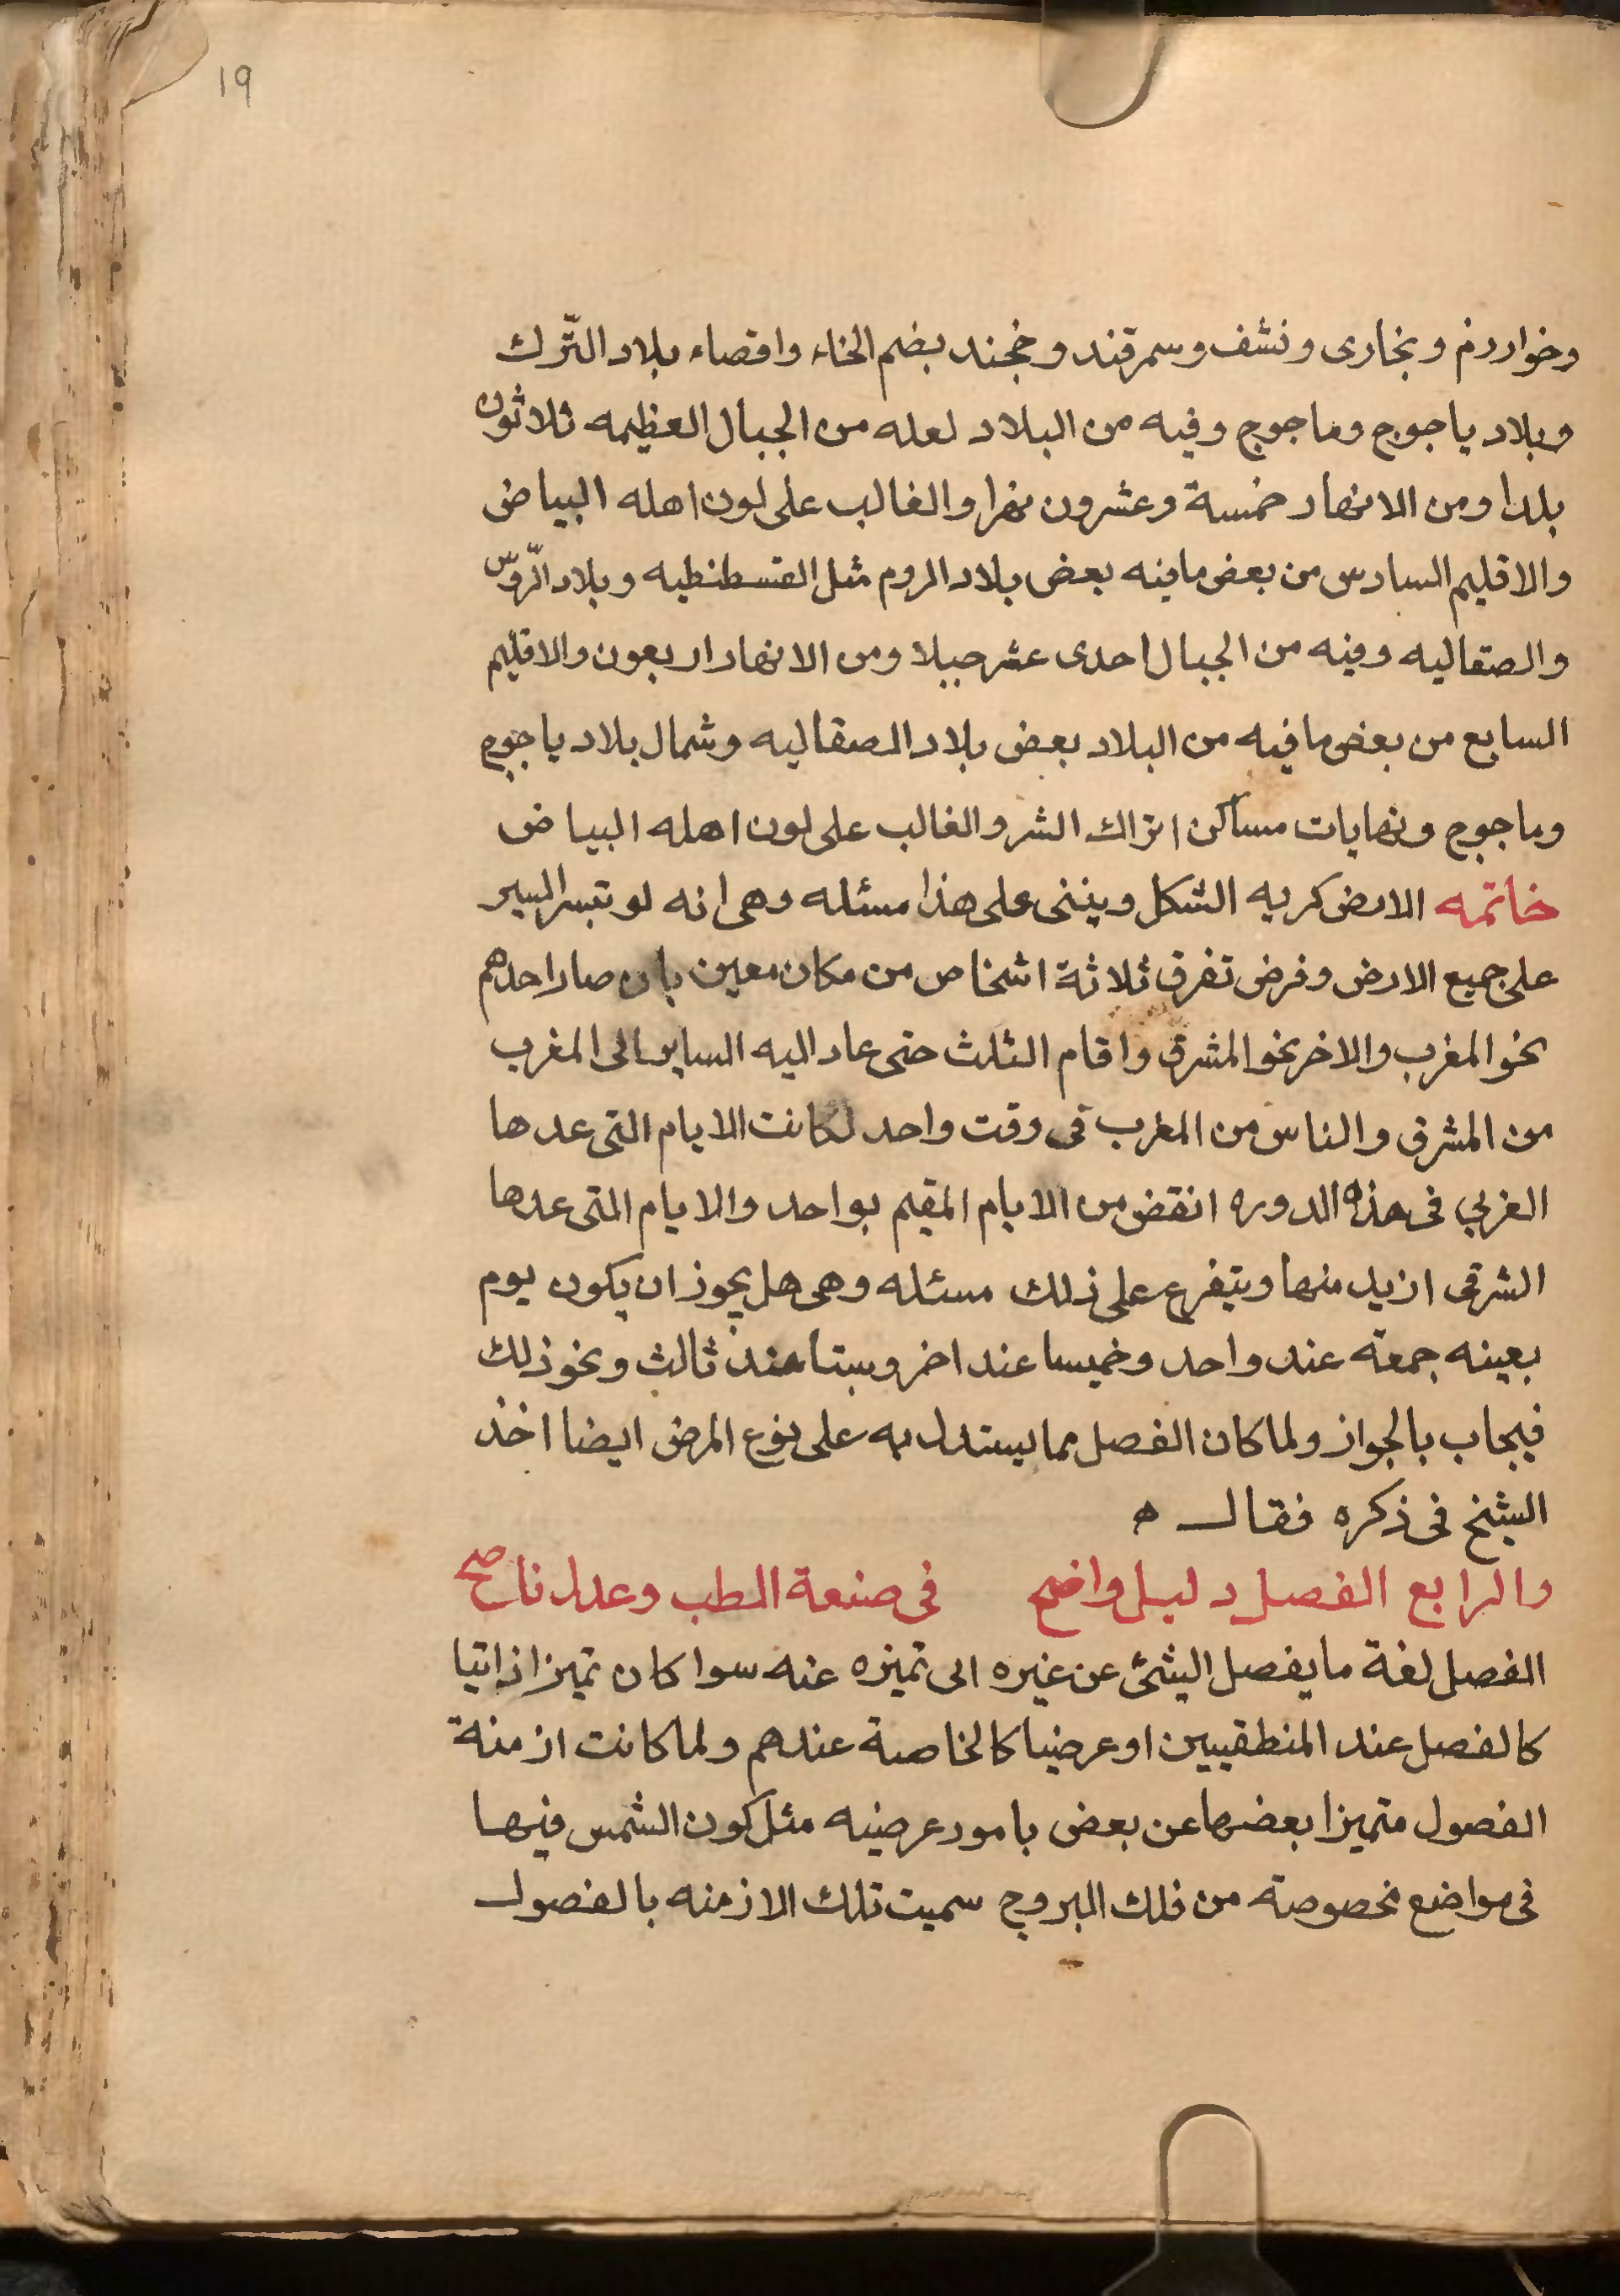 19
وخوارزم وبخارى ونشف وسمرقند وخجند بضم الخاء واقصاء بلاد التّرك
وبلاد ياجوج وماجوج وفيه من البلاد لعله من الجبال العظيمه ثلاثون
بلدا ومن الانهار خمسة وعشرون نهرا والغالب على لون اهله البياض
والاقليم السادس من بعض مافيه بعض بلاد الروم مثل القسطنطيه وبلاد الرّوس
والصقاليه وفيه من الجبال احدى عشر جبلا ومن الانهار اربعون والاقليم
السابع من بعض مافيه من البلاد بعض بلاد الصقاليه وشمال بلاد ياجوج
وماجوج ونهايات مساكن اتراك الشر والغالب على لون اهله البياض
خاتمه الارض كريه الشكل وينبنى على هذا مسئله وهى انه لو تيسر السير
على جميع الارض وفرض تفرق ثلاثة اشخاص من مكان معين بان صار احدهم
نحو المغرب والاخر نحو المشرق واقام الثلث حتى عاد اليه السايرالى المغرب
من المشرق والناس من المغرب فى وقت واحد لكانت الايام التى عدها
الغربي فى هذه الدوره انقض من الايام المقيم بواحد والايام التى عدها
الشرقى ازيد منها ويتفرع على ذلك مسئله وهى هل يجوز ان يكون يوم
بعينه جمعة عند واحد وخميسا عند اخر وسبتا عند ثالث ونحو ذلك
فيجاب بالجواز ولما كان الفصل مما يستدل به على نوع المرض ايضا اخذ
الشيخ فى ذكره فقال ه
والرابع الفصل دليل واضح فى صنعة الطب وعدل ناصح
الفصل لغة ما يفصل الشئ عن غيره اى تميزه عنه سوا كان تميزا ذاتيا
كالفصل عند المنطقيين او عرضيا كالخاصة عندهم ولما كانت ازمنة
الفصول متميزا بعضها عن بعض بامور عرضيه مثل كون الشمس فيها
فى مواضع مخصوصة من فلك البروج سميت تلك الازمنه بالفصول